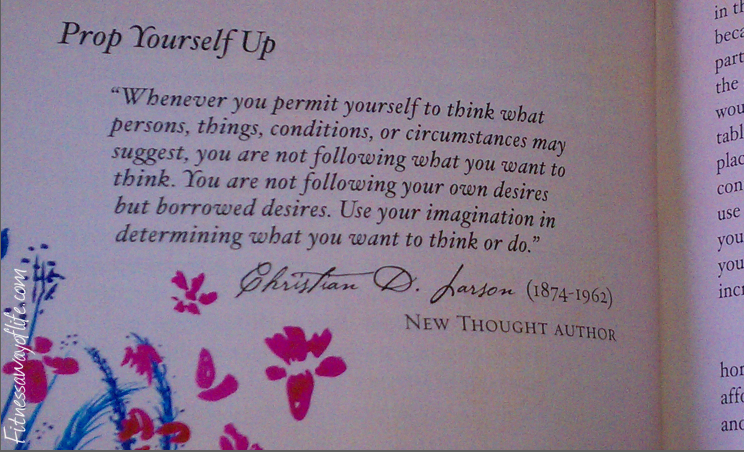 Prop Yourself Up
“Whenever you permit yourself to think what
persons, things, conditions, or circumstances may
suggest, you are not following what you want to
think. You are not following your own desires
but borrowed desires. Use your imagination in
determining what you want to think or do.”
Christian D. Larson (1874-1962)
NEW THOUGHT AUTHOR
Fitnessawayoflife.com
in
part
the
use
you
you